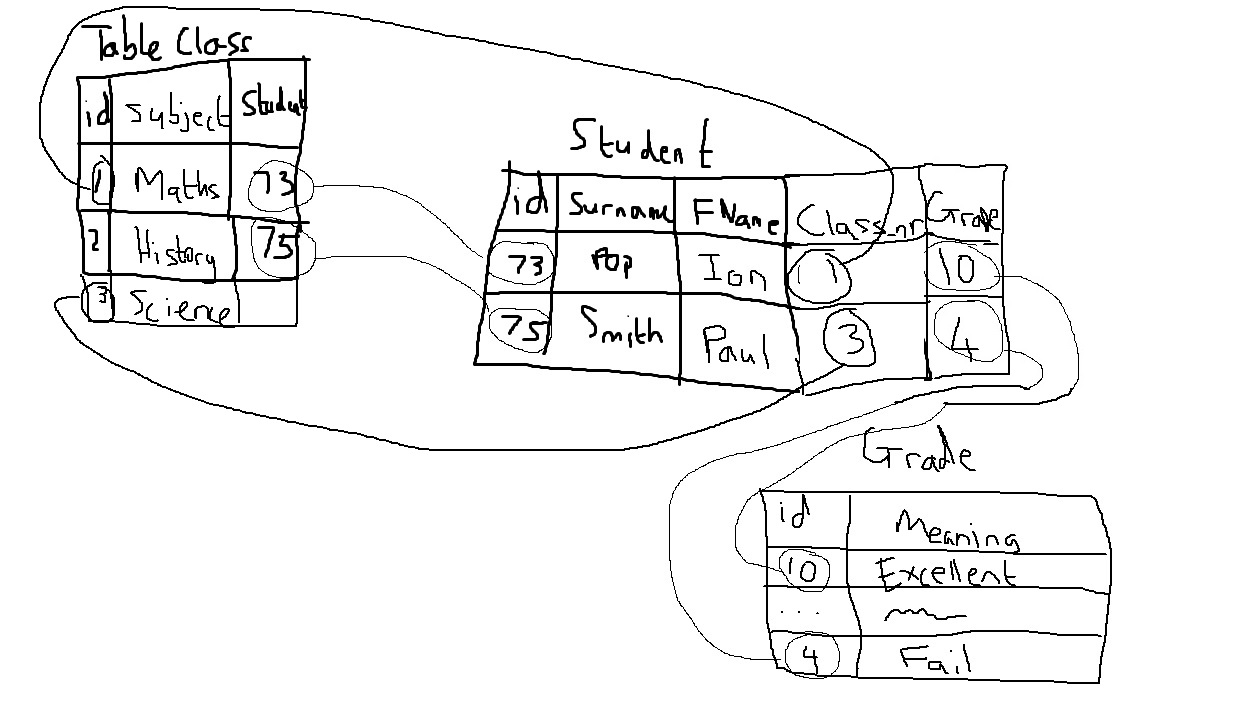 Table Class
id Subject Student
1 Maths 73
2 History 75
3 Science
Student
id Surname FName Class_nr Grade
73 Pop Ion 1 10
75 Smith Paul 3 4
Grade
id Meaning
10 Excellent
...
4 Fail